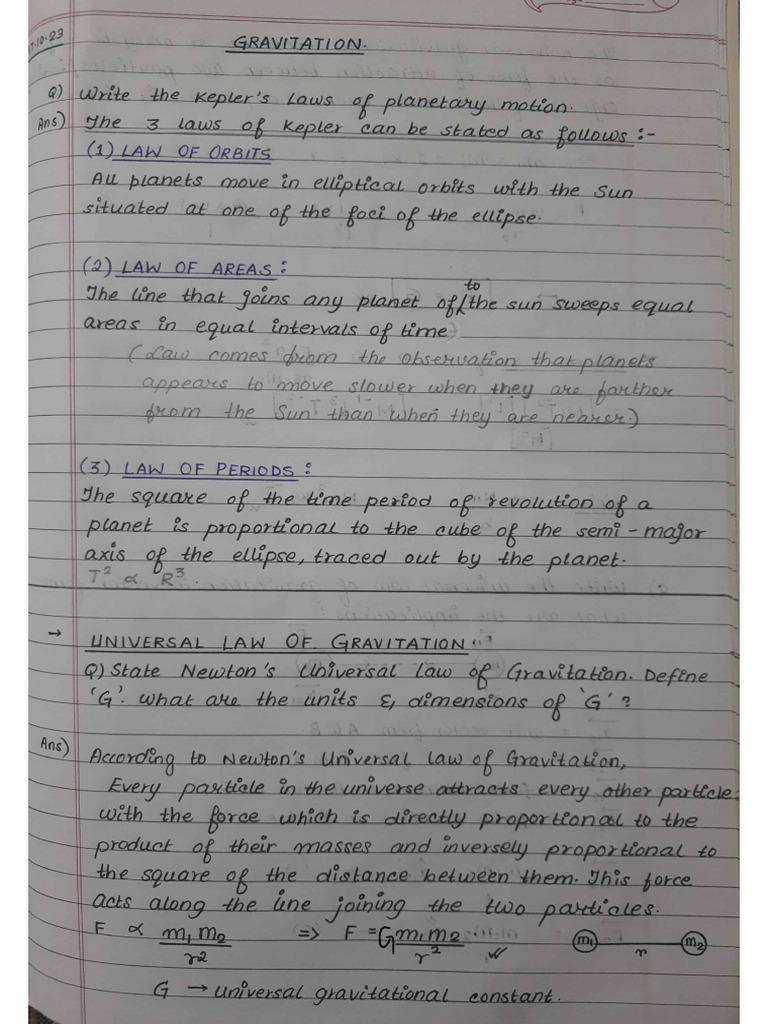 10.23
GRAVITATION.
Q) Write the Kepler's Laws of planetary motion.
Ans) The 3 laws of Kepler can be stated as follows :-
(1) LAW OF ORBITS
All planets move in elliptical orbits with the Sun
situated at one of the foci of the ellipse.
(2) LAW OF AREAS :
The line that joins any planet of/to the sun sweeps equal
areas in equal intervals of time
(Law comes from the observation that planets
appears to move slower when they are farther
from the Sun than when they are nearer.)
(3) LAW OF PERIODS :
The square of the time period of revolution of a
planet is proportional to the cube of the semi-major
axis of the ellipse, traced out by the planet.
T² ∝ R³.
→ UNIVERSAL LAW OF GRAVITATION
Q) State Newton's Universal law of Gravitation. Define
'G'. What are the units & dimensions of 'G' ?
Ans) According to Newton's Universal law of Gravitation,
Every particle in the universe attracts every other particle
with the force which is directly proportional to the
product of their masses and inversely proportional to
the square of the distance between them. This force
acts along the line joining the two particles.
F ∝ m₁m₂/r² => F = Gm₁m₂/r² m₁ r m₂
G → Universal gravitational constant.